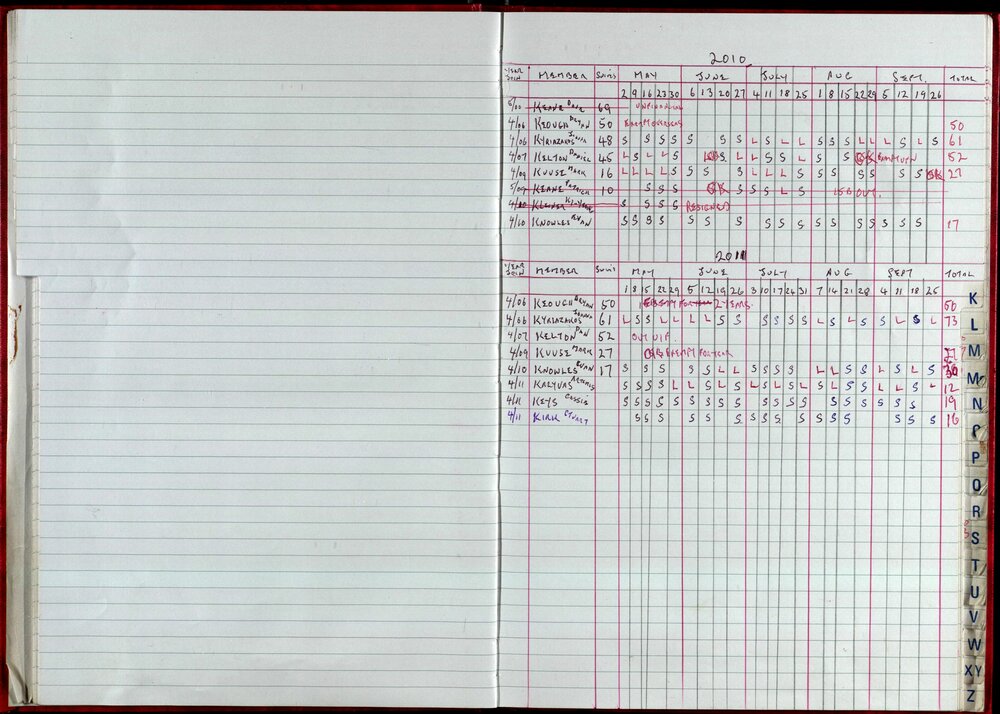 2010
YEAR JOIN MEMBER SWIMS MAY JUNE JULY AUG SEPT. TOTAL
2 9 16 23 30 6 13 20 27 4 11 18 25 1 8 15 22 29 5 12 19 26
5/00 KEANE Dave 69 UNFINANCIAL
4/06 KEOUGH BRYAN 50 EXEMPT OVERSEAS 50
4/06 KYRIAZAKOS 48 S S S S S S S L S L L S S S L L L S L S 61
4/07 KELTON DANIEL 45 L S L L S S L L S S L S S 52
4/09 KUUSE MARK 16 L L L L S S S S L L L S S S S S S S 27
5/09 KEANE PATRICK 10 S S S S S L S OUT.
4/10 S S S S RESIGNED
4/10 KNOWLES RYAN S S S S S S S S S S S S S S S S S S 17
2011
YEAR JOIN MEMBER SWIMS MAY JUNE JULY AUG SEPT TOTAL
1 8 15 22 29 5 12 19 26 3 10 17 24 31 7 14 21 28 4 11 18 25
4/06 KEOUGH BRYAN 50 EXEMPT FOR 2 YEARS. 50
4/06 KYRIAZAKOS 61 L S S L L L L S S S S S S L S L S S L S L 73
4/07 KELTON DAN 52 OUT U.F.
4/09 KUUSE MARK 27 EXEMPT FOR YEAR 27
4/10 KNOWLES RYAN 17 S S S S S L L S S S S L L S S L S L S
4/11 KALYVAS S S S S L L S L S L S L S L L S S L L S L 12
4/11 KEYS CASSIE S S S S S S S S S S S S S S S S S S S S 19
4/11 KIRK STUART S S S S S S S S S S S S S S S 16
K
L
M
M
N
P
P
Q
R
S
T
U
V
W
XY
Z